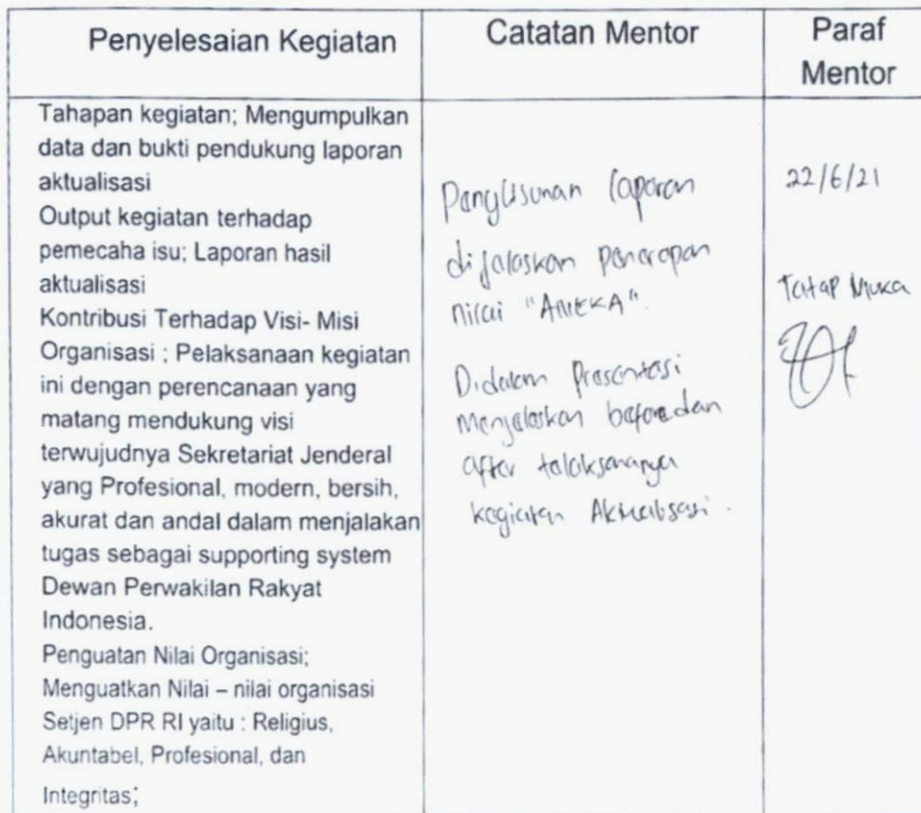 Penyelesaian Kegiatan
Catatan Mentor
Paraf
Mentor
Tahapan kegiatan; Mengumpulkan
data dan bukti pendukung laporan
aktualisasi
Output kegiatan terhadap
pemecaha isu; Laporan hasil
aktualisasi
Kontribusi Terhadap Visi- Misi
Organisasi ; Pelaksanaan kegiatan
ini dengan perencanaan yang
matang mendukung visi
terwujudnya Sekretariat Jenderal
yang Profesional, modern, bersih,
akurat dan andal dalam menjalakan
tugas sebagai supporting system
Dewan Perwakilan Rakyat
Indonesia.
Penguatan Nilai Organisasi;
Menguatkan Nilai – nilai organisasi
Setjen DPR RI yaitu : Religius,
Akuntabel, Profesional, dan
Integritas;
Penyusunan laporan
dijelaskan penerapan
nilai "ANEKA".
Didalam Presentasi
Menjelaskan before dan
after telaksananya
kegiatan Aktualisasi.
22/6/21
Tatap Muka